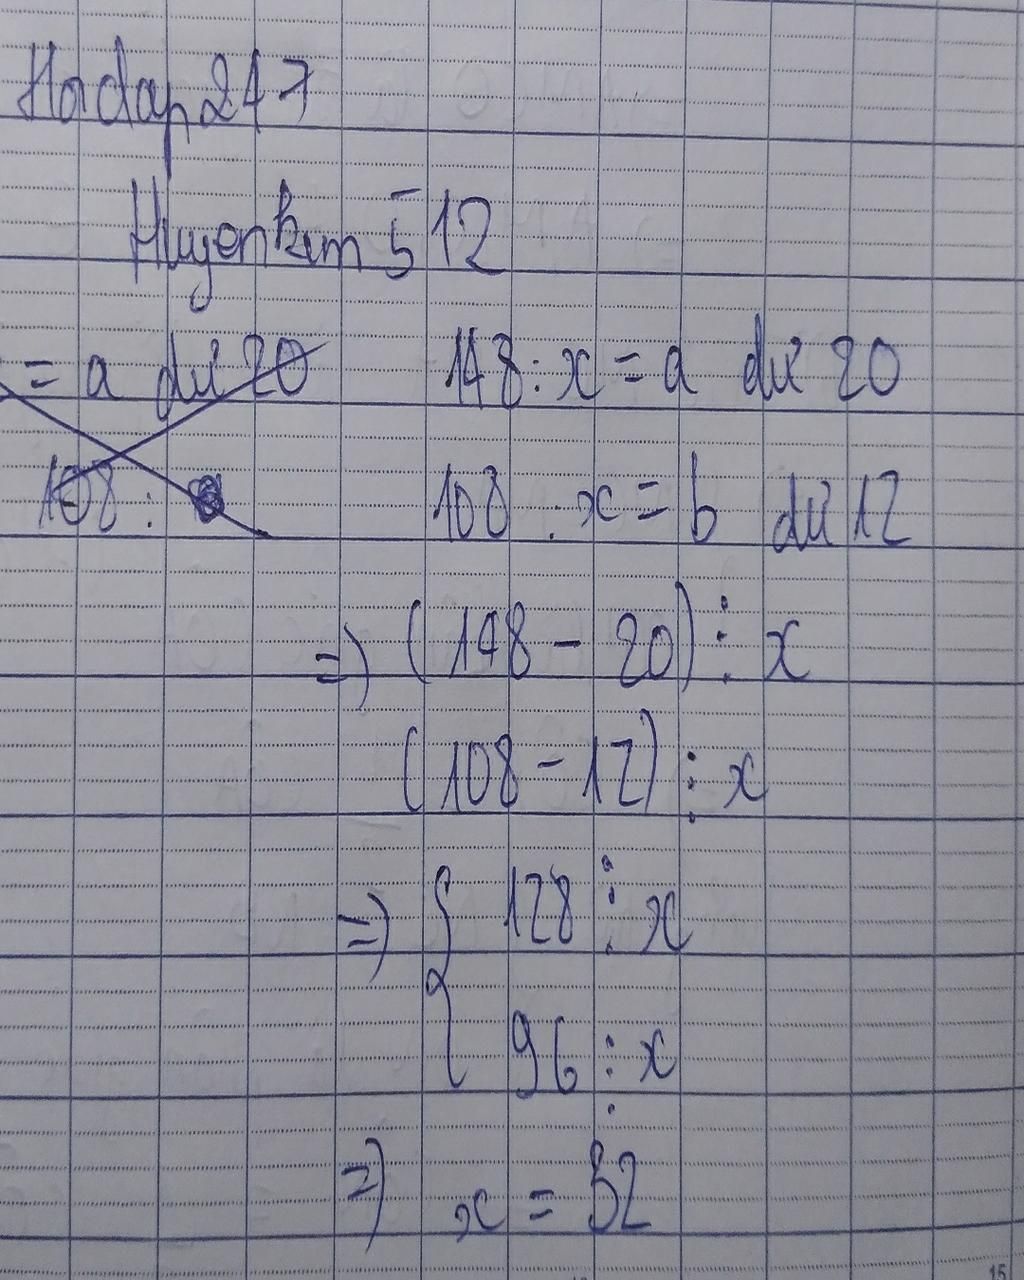 Hoidap247
Huyenkem512
= a dư 20
108 :
148 : x = a dư 20
108 : x = b dư 12
=) (148 - 20) ⋮ x
(108 - 12) ⋮ x
=) { 128 ⋮ x
96 ⋮ x
=) x = 32
15